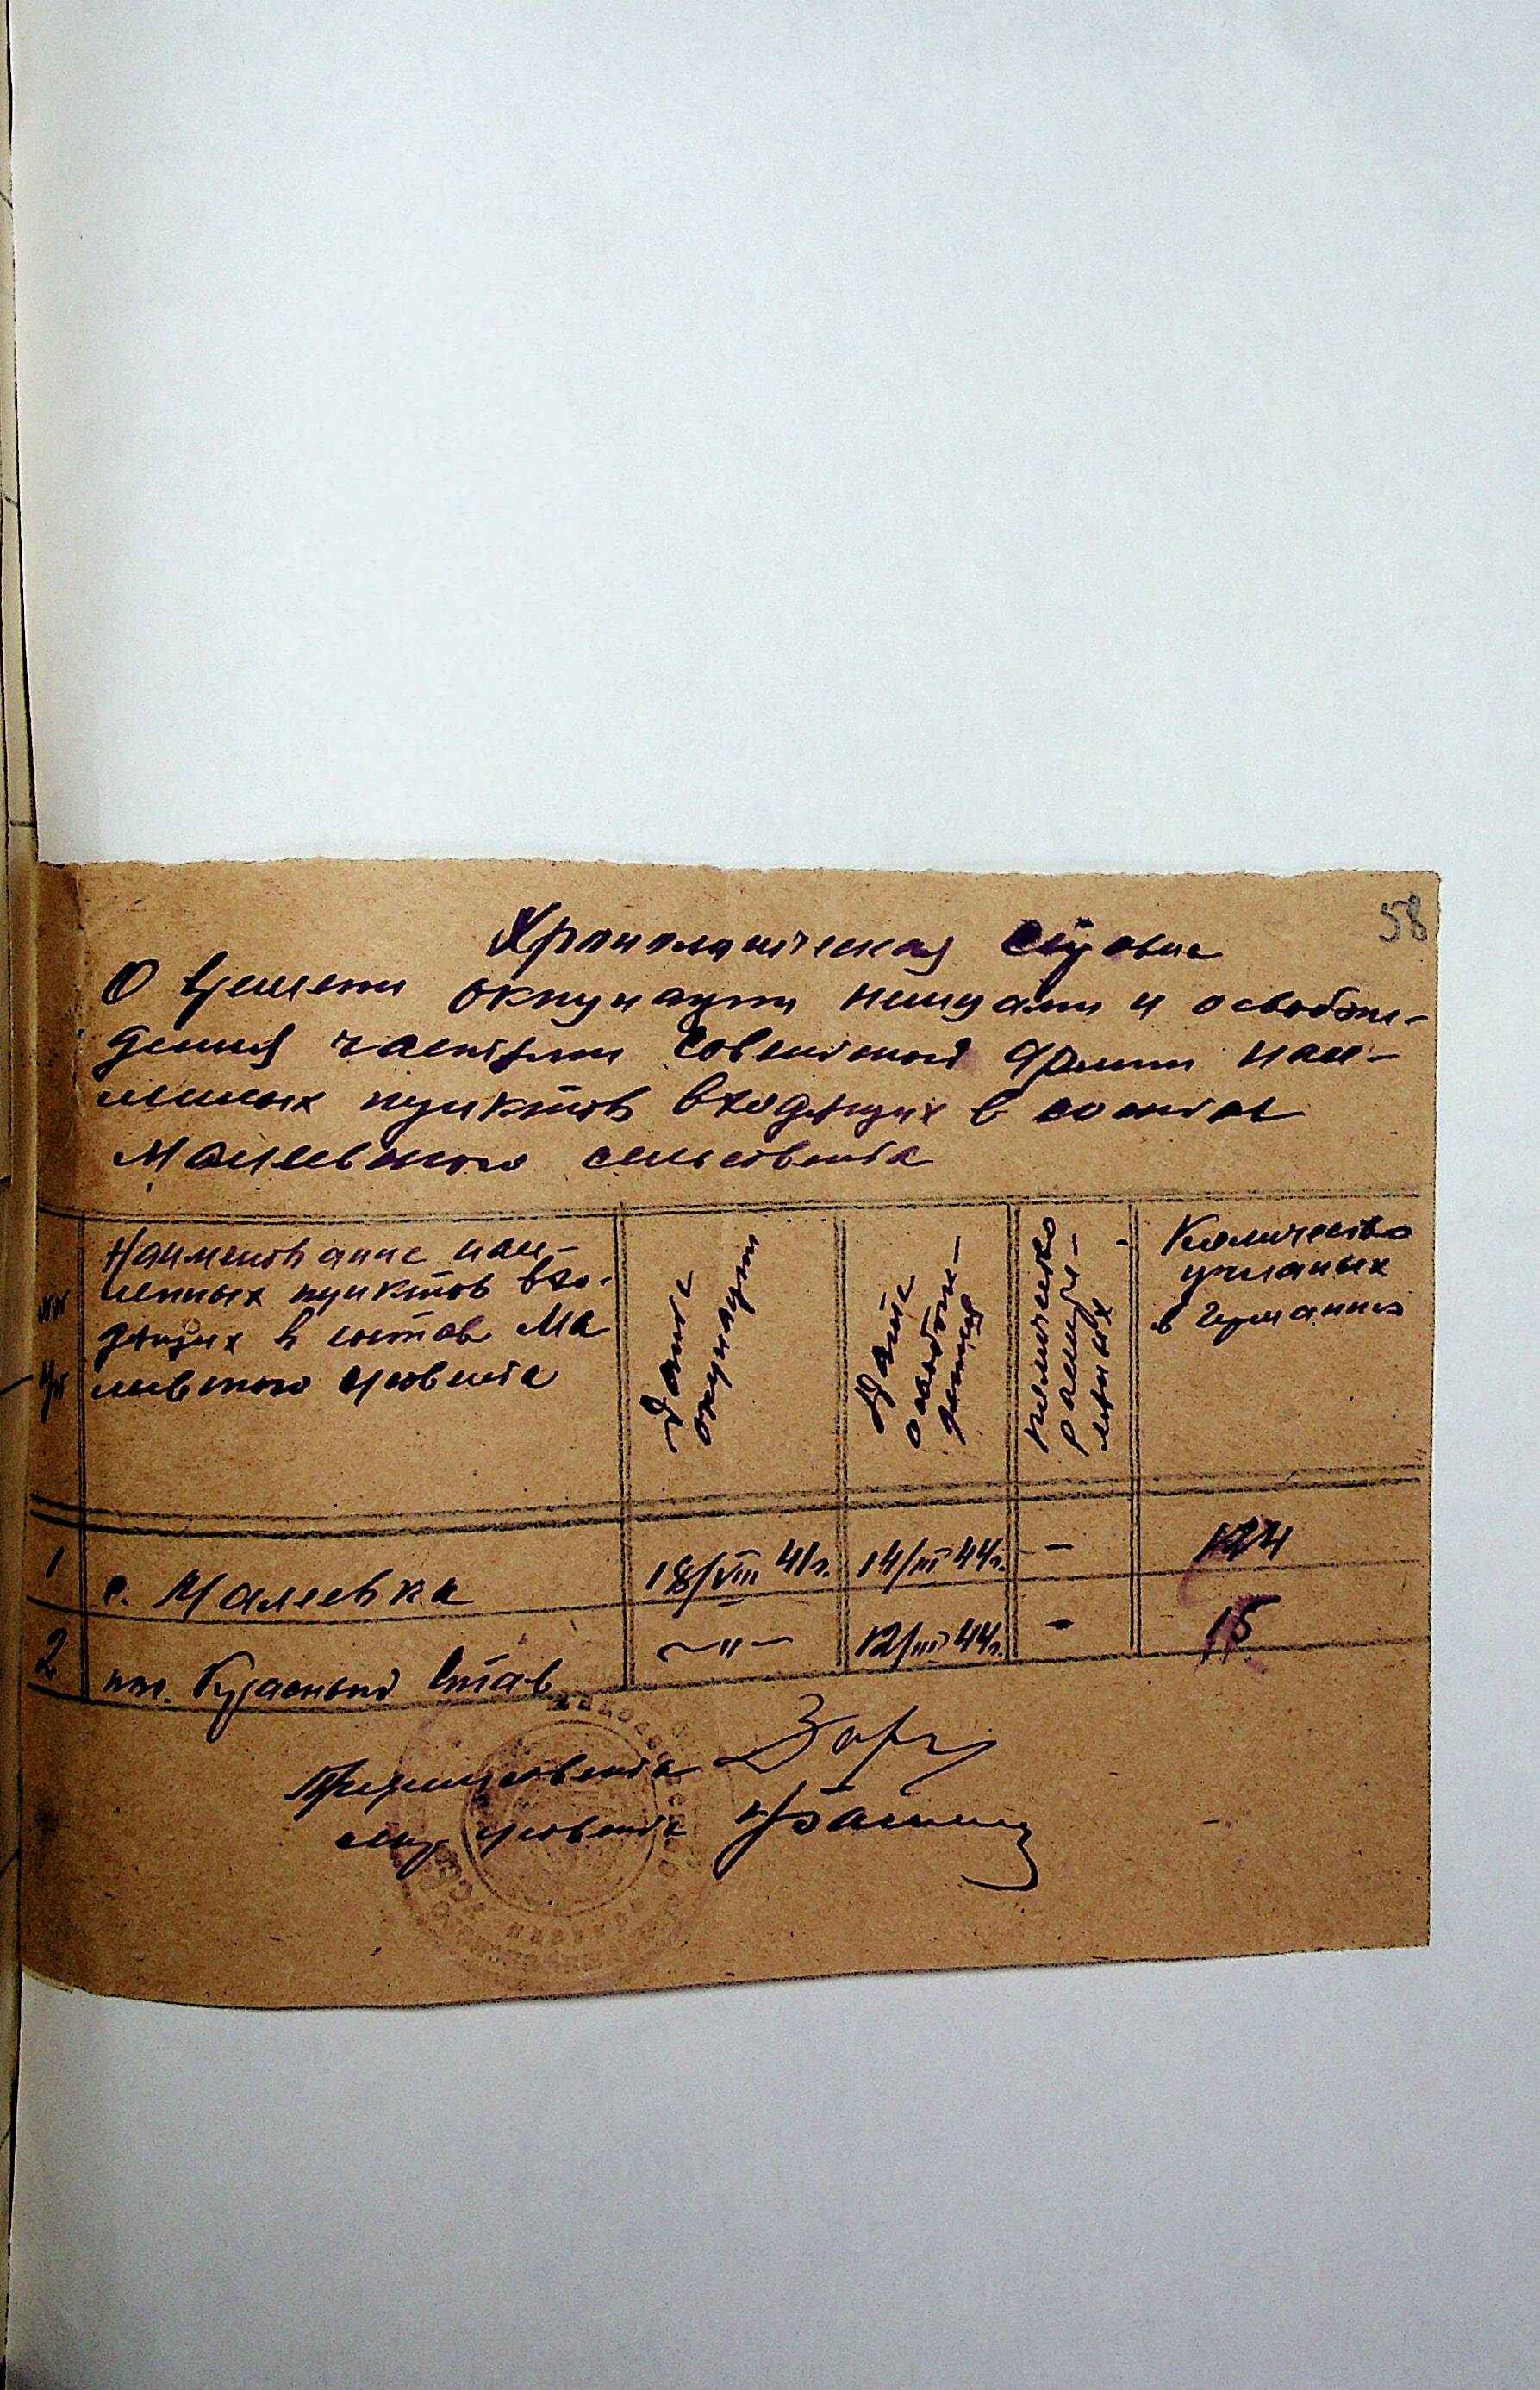 58
Хронологическая справка
О времени оккупации немцами и освобож-
дения частями Советской Армии насе-
ленных пунктов входящих в состав
Малеевского сельсовета
№№ п/п
Наименование насе-
ленных пунктов вхо-
дящих в состав Ма
леевского с/совета
Дата
оккупации
Дата
освобож-
дения
Количество
расстре-
лянных
Количество
угнаных
в Германию
1 с. Малеевка 18/VIII 41г. 14/III 44г. - 124
2 пос. Красный Став —"— 12/III 44г. - 15
Пред сельсовета
секр. с/совета